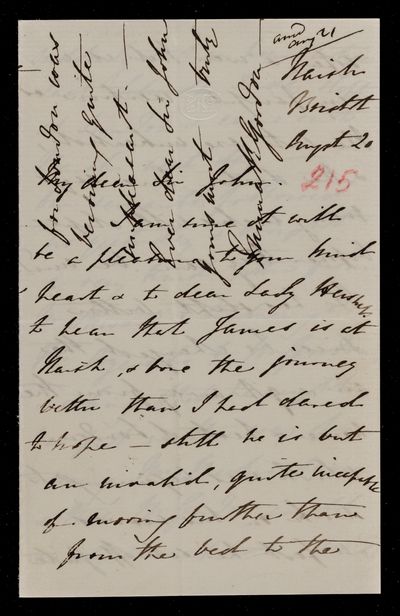 and
aug 21
Naish
Bristol
Augst 20
215
My dear Sir John.
I am sure it will
be a pleasure to your kind
heart & to dear Lady Herschel
to hear that James is at
Naish, & bore the journey
better than I had dared
to hope — still he is but
an invalid, quite incapable
of moving further than
from the bed to the
for London was
becoming quite
unpleasant.
Ever dear Sir John
yours most truly
Gordon